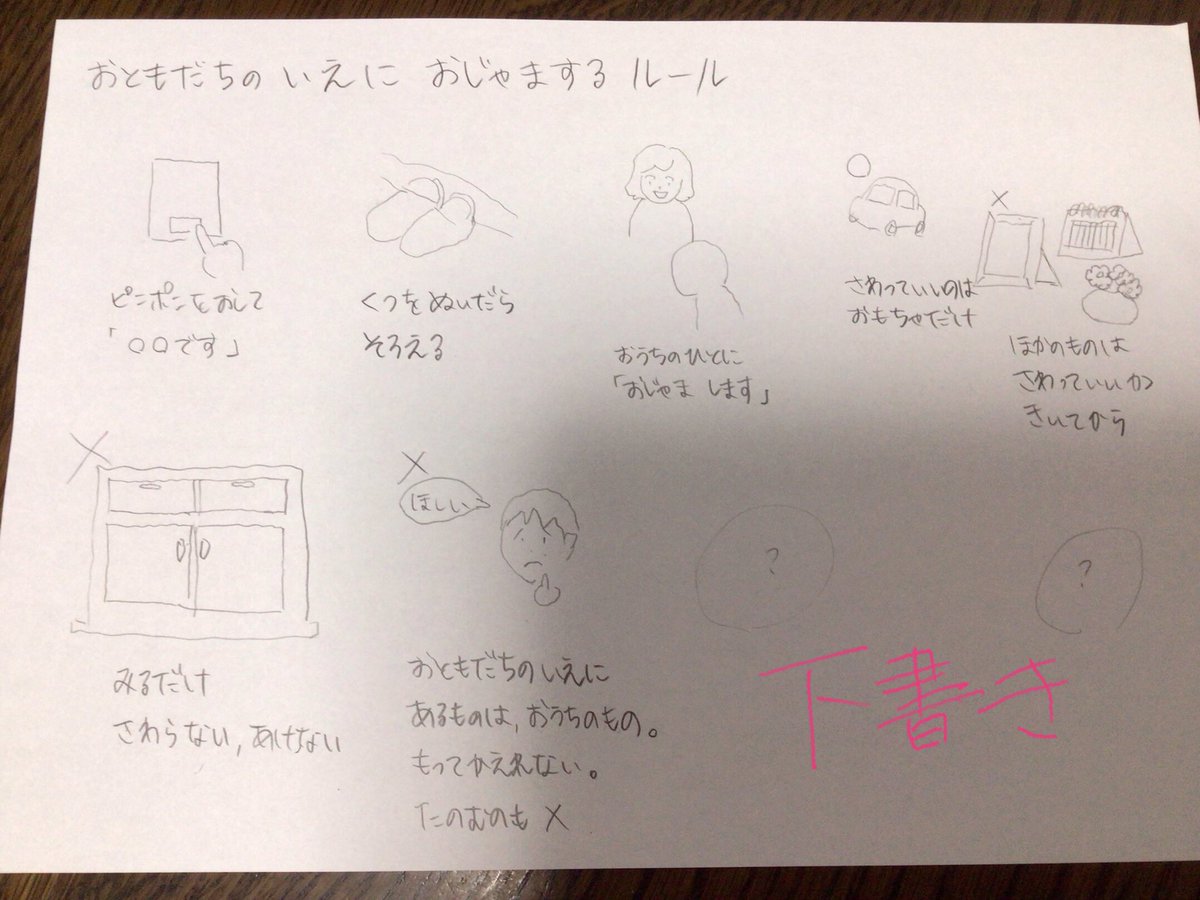 おともだちの いえに おじゃまする ルール
ピンポンをおして
「〇〇です」
くつをぬいだら
そろえる
おうちのひとに
「おじゃま します」
○
さわっていいのは
おもちゃだけ
×
ほかのものは
さわっていいか
きいてから
×
みるだけ
さわらない,あけない
×
ほしい
おともだちのいえに
あるものは,おうちのもの。
もってかえれない。
たのむのも ×
?
?
下書き